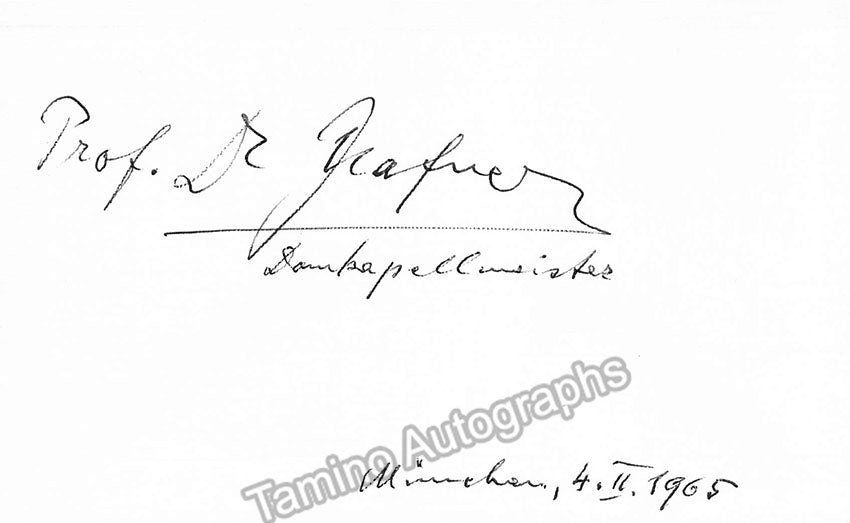 Prof. Dr Hafner
Domkapellmeister
Tamino Autographs
München, 4. II. 1965